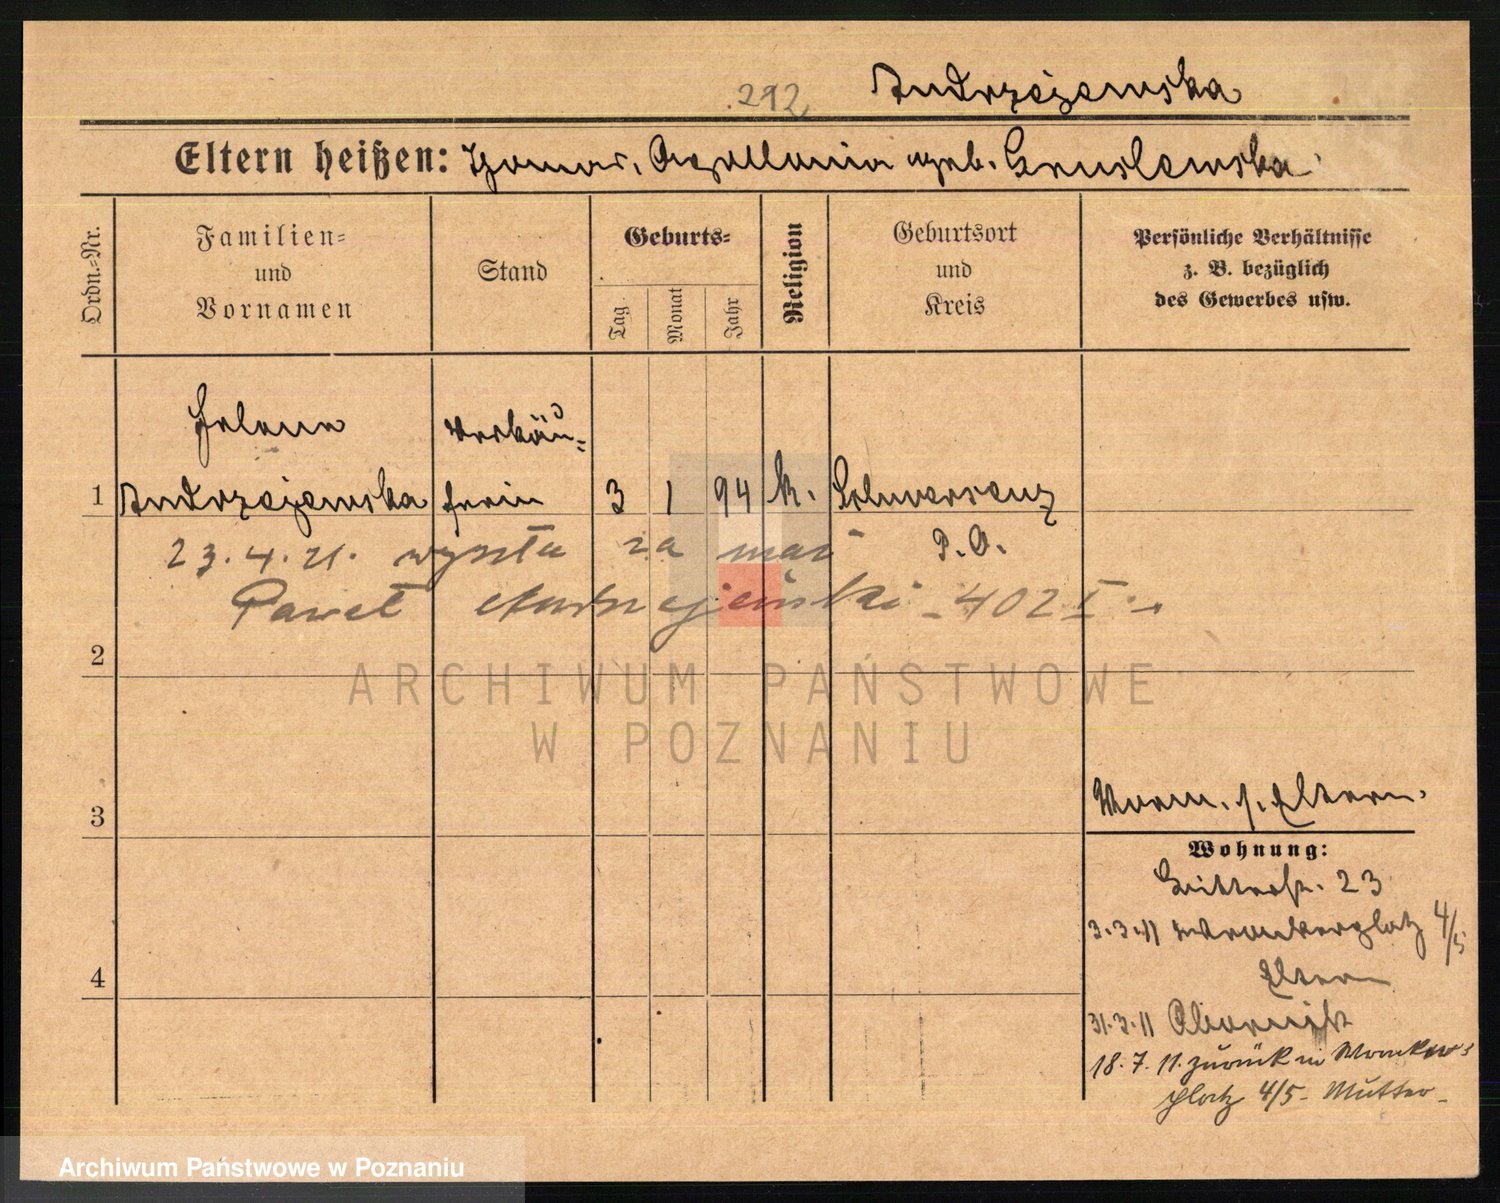 292 Andrzejewska
Eltern heißen: Thomas, Apollonia geb.
Ordn.=Nr.
Familien=
und
Vornamen
Stand
Geburts=
Tag
Monat
Jahr
Religion
Geburtsort
und
Kreis
Persönliche Verhältnisse
z. B. bezüglich
des Gewerbes usw.
Helena Verkäu=
1 Andrzejewska ferin 3 1 94 k. Schwersenz
23.4.21. wyszła za mąż P. O.
Paweł Andrzejewski - 402 I
2
ARCHIWUM PAŃSTWOWE
W POZNANIU
3
Vorm. s. Eltern.
Wohnung:
Ritterstr. 23
3.3.11 Wronkerplatz 4/5
Eltern
4
31.3.11 Obornik
18.7.11. zurück in Wronker
platz 4/5 - Mutter -
Archiwum Państwowe w Poznaniu